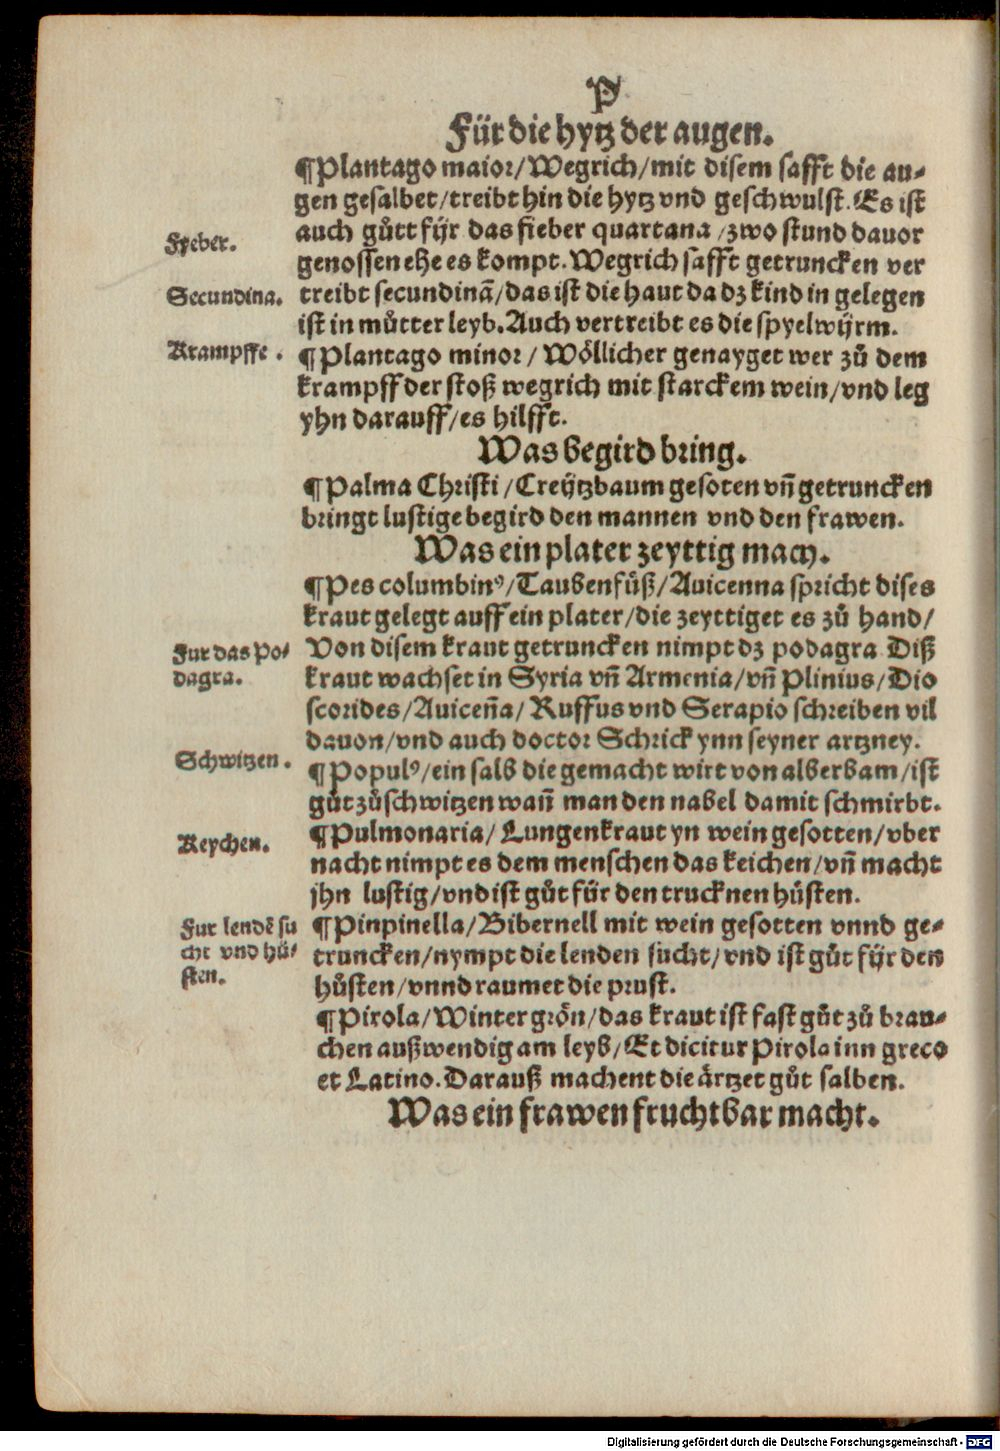 P
Für die hytz der augen.
¶Plantago maior/Wegrich/mit disem safft die au⸗
gen gesalbet/treibt hin die hytz vnd geschwulst. Es ist
auch gůtt fijr das fieber quartana/zwo stund dauor
Fyeber.
genossen ehe es kompt. Wegrich safft getruncken ver
Secundina.
treibt secundinã/das ist die haut da dz kind in gelegen
ist in můtter leyb. Auch vertreibt es die spyelwijrm.
Krampffe.
¶Plantago minor/Wöllicher genayget wer zů dem
krampff der stoß wegrich mit starckem wein/vnd leg
yhn darauff/es hilfft.
Was begird bring.
¶Palma Christi/Creÿtzbaum gesoten vñ getruncken
bringt lustige begird den mannen vnd den frawen.
Was ein plater zeyttig mach.
¶Pes columbinꝰ/Taubenfůß/Auicenna spricht dises
kraut gelegt auff ein plater/die zeyttiget es zů hand/
Fur das Po⸗
dagra.
Von disem kraut getruncken nimpt dz podagra Diß
kraut wachset in Syria vñ Armenia/vñ Plinius/Dio
scorides/Auiceña/Ruffus vnd Serapio schreiben vil
dauon/vnd auch doctor Schrick ynn seyner artzney.
Schwitzen.
¶Populꝰ/ein salb die gemacht wirt von alberbam/ist
gůt zů schwitzen wañ man den nabel damit schmirbt.
Keychen.
¶Pulmonaria/Lungenkraut yn wein gesotten/vber
nacht nimpt es dem menschen das keichen/vñ macht
jhn lustig/vnd ist gůt für den trucknen hůsten.
Fur lendẽ su
cht vnd hů⸗
sten.
¶Pinpinella/Bibernell mit wein gesotten vnnd ge⸗
truncken/nympt die lenden sucht/vnd ist gůt fijr den
hůsten/vnnd raumet die prust.
¶Pirola/Wintergrön/das kraut ist fast gůt zů brau⸗
chen außwendig am leyb/Et dicitur Pirola inn greco
et Latino. Darauß machent die ärtzet gůt salben.
Was ein frawen fruchtbar macht.
Digitalisierung gefördert durch die Deutsche Forschungsgemeinschaft - DFG